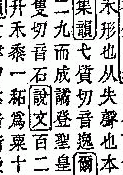 未形也从失聲也本
集韻弋質切音逸爾
二九而成譎登聖皇
隻切音石說文百二
升禾黍一䄷爲粟十